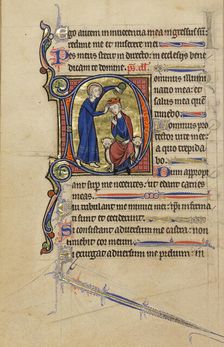 Ego autem in innocentia mea ingressus sum
redime me et miserere mei
Pes meus stetit in directo in ecclesiis bene
dicam te domine
Dominus illumi
natio mea et
salus mea quem
timebo
Dominus pro
tector vite mee
a quo trepida
bo
Dum appropi
ant super me nocentes ut edant carnes
meas
Qui tribulant me inimici mei ipsi infirma
ti sunt et ceciderunt
Si consistant adversum me castra non
timebit cor meum
Si exurgat adversum me prelium in